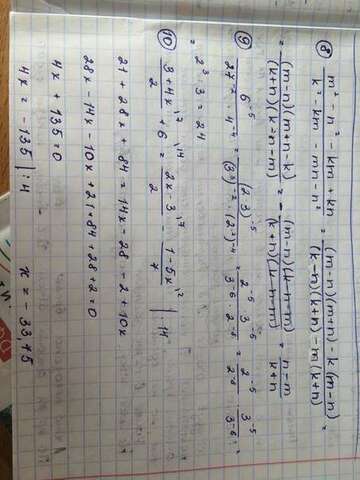 ⑧ (m² - n² - km + kn)/(k² - km - mn - n²) = ((m-n)(m+n) - k(m-n))/((k-n)(k+n) - m(k+n)) =
= ((m-n)(m+n-k))/((k+n)(k-n-m)) = (n-m)/(k+n)
⑨ 6⁻⁵/(27⁻² · 4⁻⁴) = (2·3)⁻⁵/((3³)⁻² · (2²)⁻⁴) = (2⁻⁵ · 3⁻⁵)/(3⁻⁶ · 2⁻⁸) = 2⁻⁵/2⁻⁸ · 3⁻⁵/3⁻⁶ =
= 2³ · 3 = 24
⑩ (3+4x)/2 + 6 = (2x-3)/2 - (1-5x)/7 | · 14
21 + 28x + 84 = 14x - 28 - 2 + 10x
28x - 14x - 10x + 21 + 84 + 28 + 2 = 0
4x + 135 = 0
4x = -135 | : 4 x = -33,75